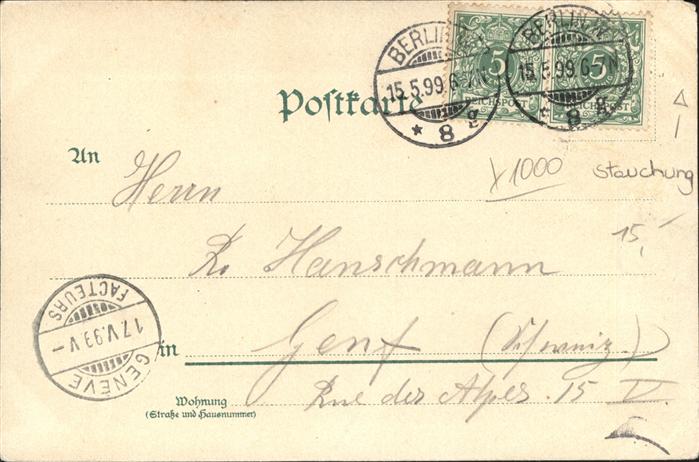 BERLIN, N.
15.5.99. 6-7N.
* 8 g
5
REICHSPOST
BERLIN, N.
15.5.99. 6-7N
* 8 g
5
REICHSPOST
Postkarte
x1000 Stauchung
15,-
An
Herrn
Hanschmann
in Genf (Schweiz.)
Wohnung
(Straße und Hausnummer)
Rue des Alpes. 15
GENÈVE
17.V.99.V–
FACTEURS